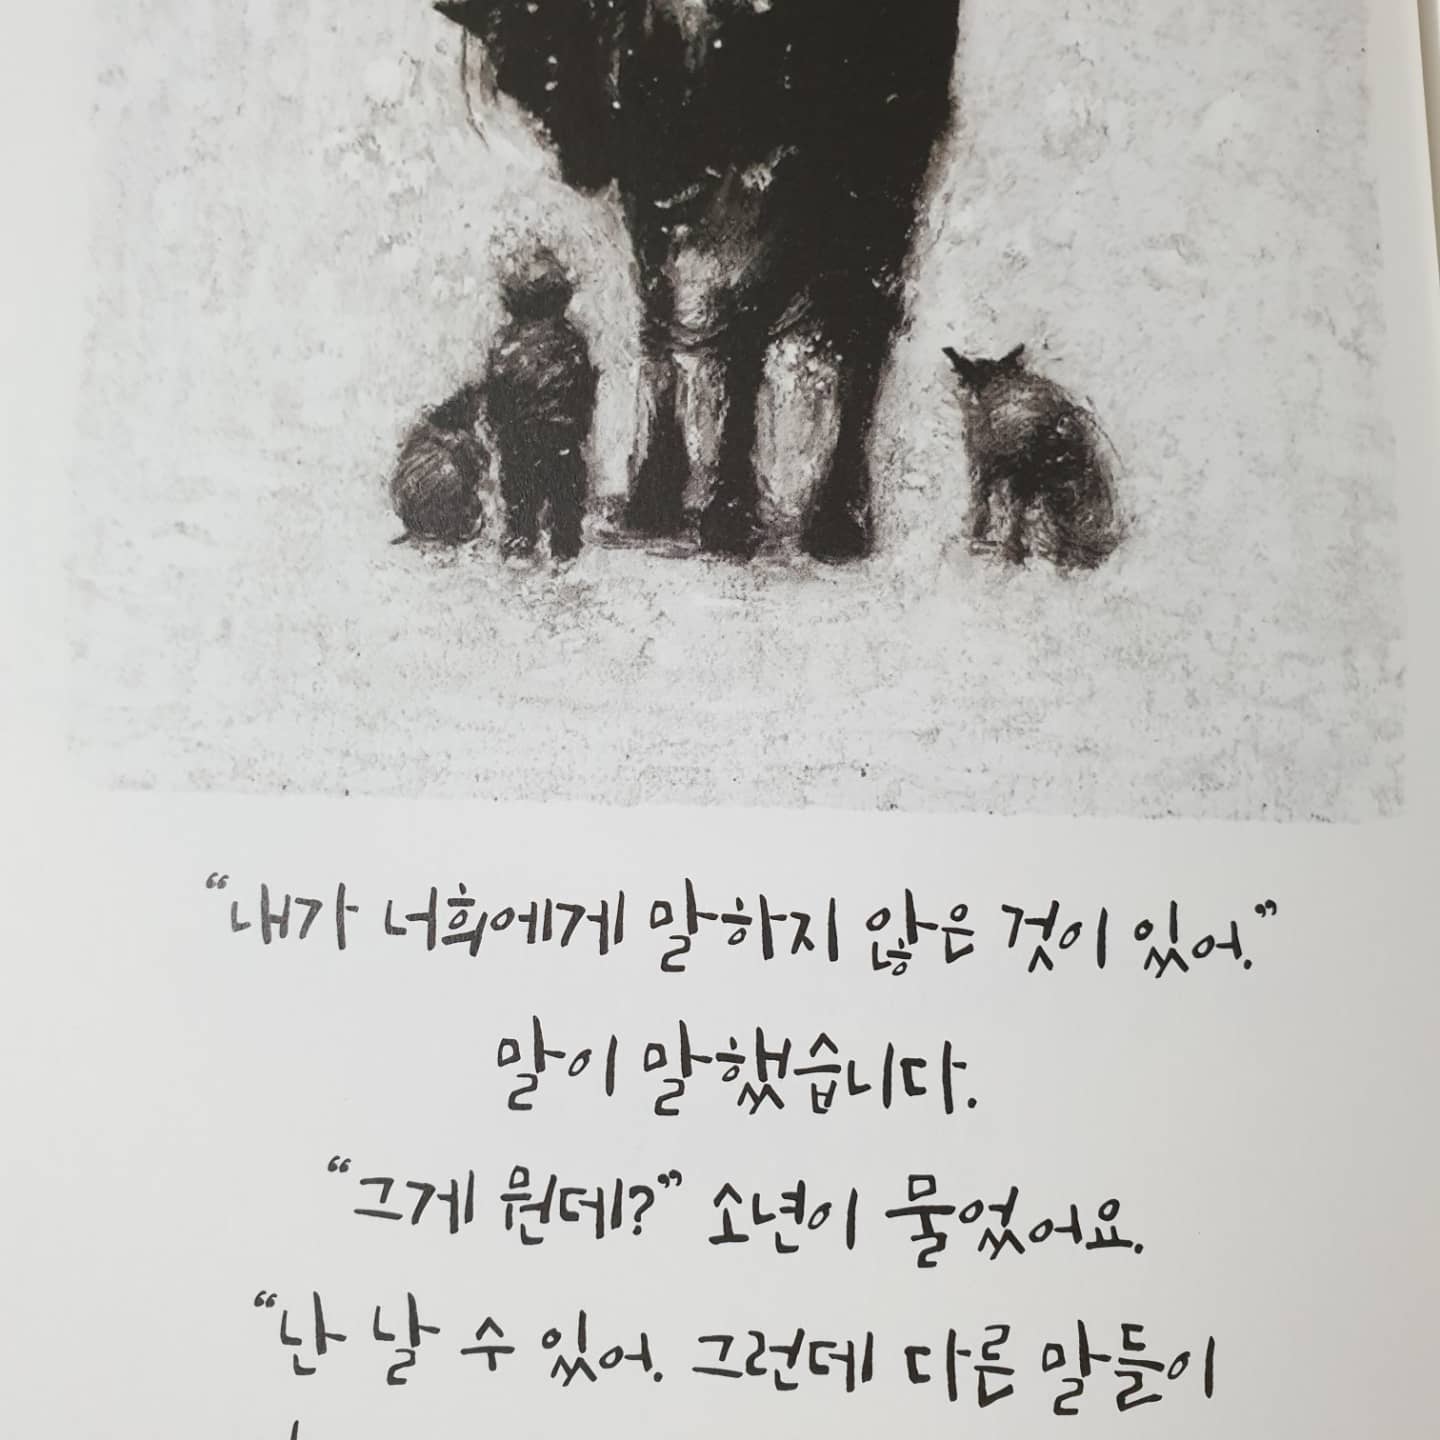 “내가 너희에게 말하지 않은 것이 있어.”
말이 말했습니다.
“그게 뭔데?” 소년이 물었어요.
“난 날 수 있어. 그런데 다른 말들이